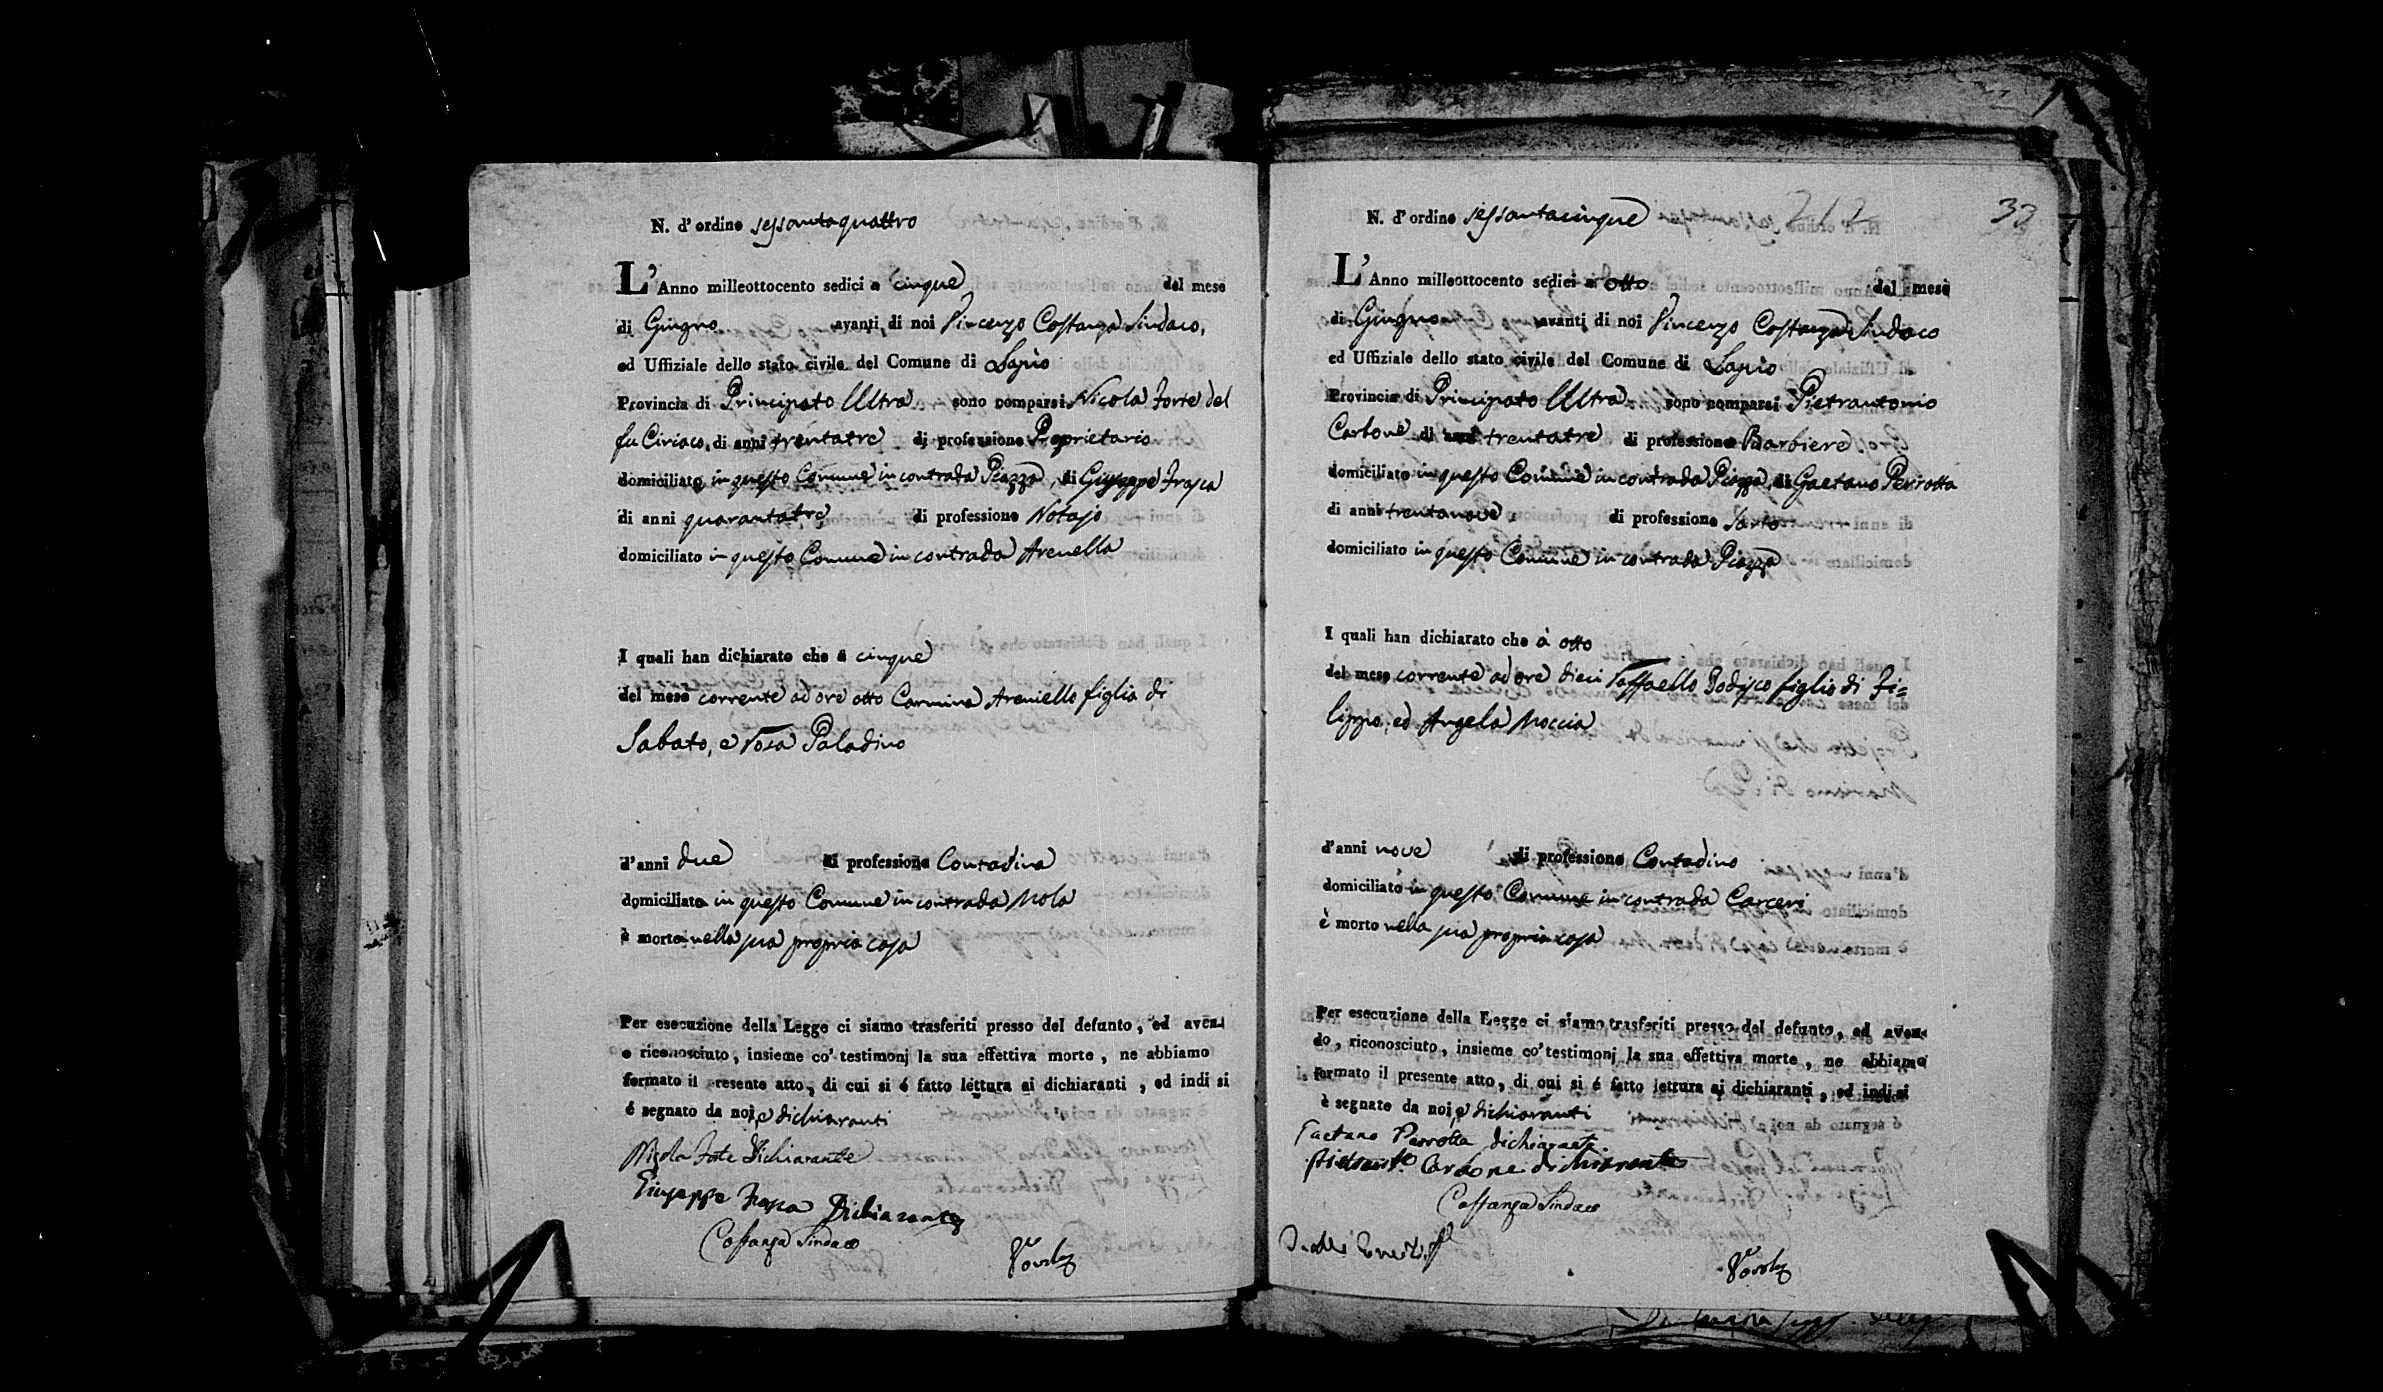 N. d' ordine sessantaquattro
L' Anno milleottocento sedici a cinque del mese
di Giugno avanti di noi Vincenzo Costanza Sindaco,
ed Uffiziale dello stato civile del Comune di Lapio
Provincia di Principato Ultra sono comparsi Nicola Forte del
fu Ciriaco, di anni trentatre di professione Proprietario
domiciliato in questo Comune in contrada Piazza, di Giuseppe Frasca
di anni quarantatre di professione Notajo
domiciliato in questo Comune in contrada Arenella
I quali han dichiarato che a cinque
del mese corrente ad ore otto Carmina Areniello figlia di
Sabato, e Rosa Paladino
d'anni due di professione Contadina
domiciliata in questo Comune in contrada Mola
è morta nella sua propria casa
Per esecuzione della Legge ci siamo trasferiti presso del defunto, ed aven-
o riconosciuto, insieme co' testimonj la sua effettiva morte, ne abbiamo
formato il resente atto, di cui si é fatto lettura ai dichiaranti, ed indi si
é segnato da noi, e dichiaranti
Nicola Forte Dichiarante
Giuseppe Frasca Dichiarante
Costanza Sindaco
32
N. d' ordine sessantacinque
L' Anno milleottocento sedici a otto del mese
di Giugno avanti di noi Vincenzo Costanza Sindaco
ed Uffiziale dello stato civile del Comune di Lapio
Provincia di Principato Ultra sono comparsi Pietrantonio
Carbone di anni trentatre di professione Barbiere
domiciliato in questo Comune in contrada Piazza, di Gaetano Perrotta
di anni trentanove, di professione Sarto
domiciliato in questo Comune in contrada Piazza
I quali han dichiarato che à otto
del mese corrente ad ore dieci Raffaello Bodisco figlio di Fi=
lippo, ed Angela Moccia
d'anni nove di professione Contadino
domiciliato in questo Comune in contrada Carceri
è morto nella sua propria casa
Per esecuzione della Legge ci siamo trasferiti presso del defunto, ed aven-
do, riconosciuto, insieme co' testimonj la sua effettiva morte, ne abbiamo
formato il presente atto, di cui si é fatto lettura ai dichiaranti, ed indi si
è segnato da noi, e dichiaranti
Gaetano Perrotta dichiarante
Carbone dichiarante
Costanza Sindaco